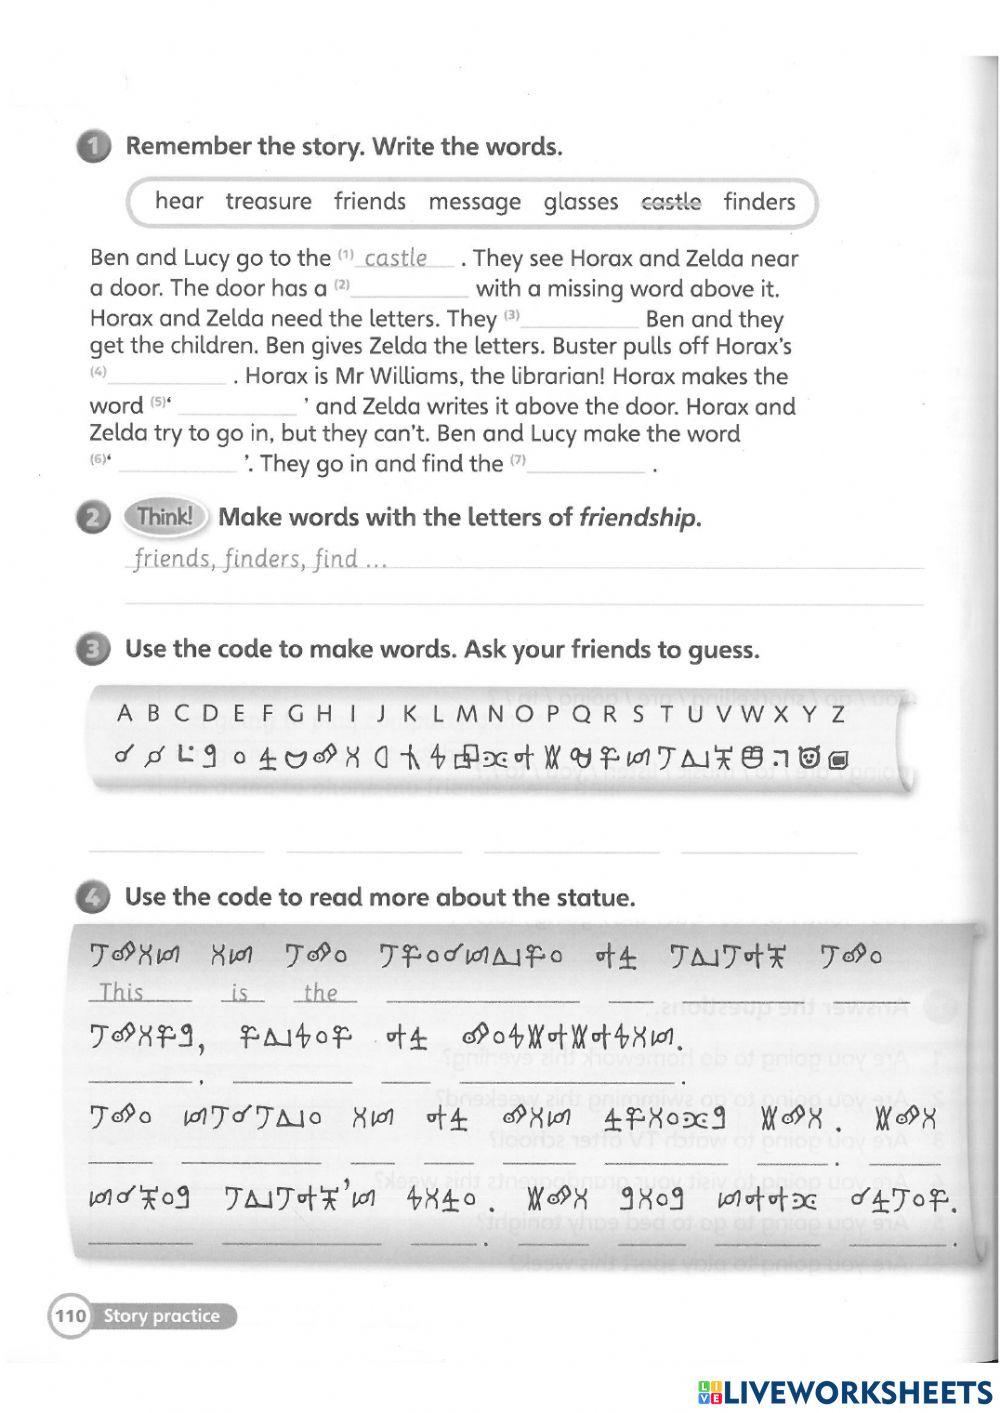 1 Remember the story. Write the words.
hear treasure friends message glasses castle finders
Ben and Lucy go to the (1) castle . They see Horax and Zelda near
a door. The door has a (2)__________ with a missing word above it.
Horax and Zelda need the letters. They (3)__________ Ben and they
get the children. Ben gives Zelda the letters. Buster pulls off Horax's
(4)__________ . Horax is Mr Williams, the librarian! Horax makes the
word (5)'__________' and Zelda writes it above the door. Horax and
Zelda try to go in, but they can't. Ben and Lucy make the word
(6)'__________'. They go in and find the (7)__________ .
2 Think! Make words with the letters of friendship.
friends, finders, find ...
3 Use the code to make words. Ask your friends to guess.
A B C D E F G H I J K L M N O P Q R S T U V W X Y Z
4 Use the code to read more about the statue.
This is the
110 Story practice
LIVEWORKSHEETS